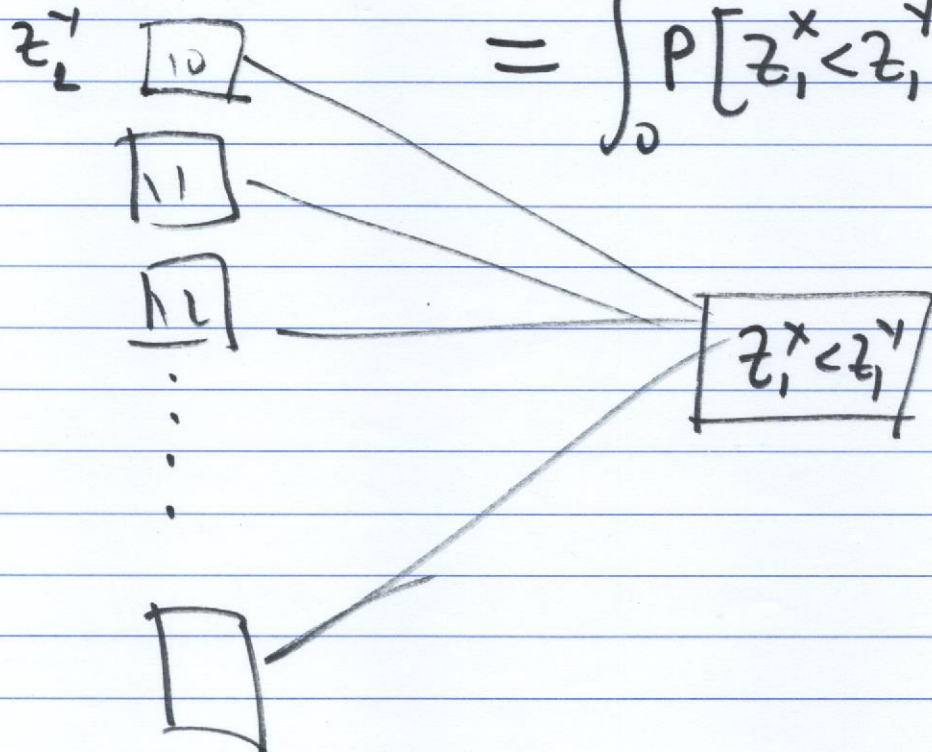 Z₁^Y 10 = ∫₀ P[Z₁^X < Z₁^Y
11
12
Z₁^X < Z₁^Y